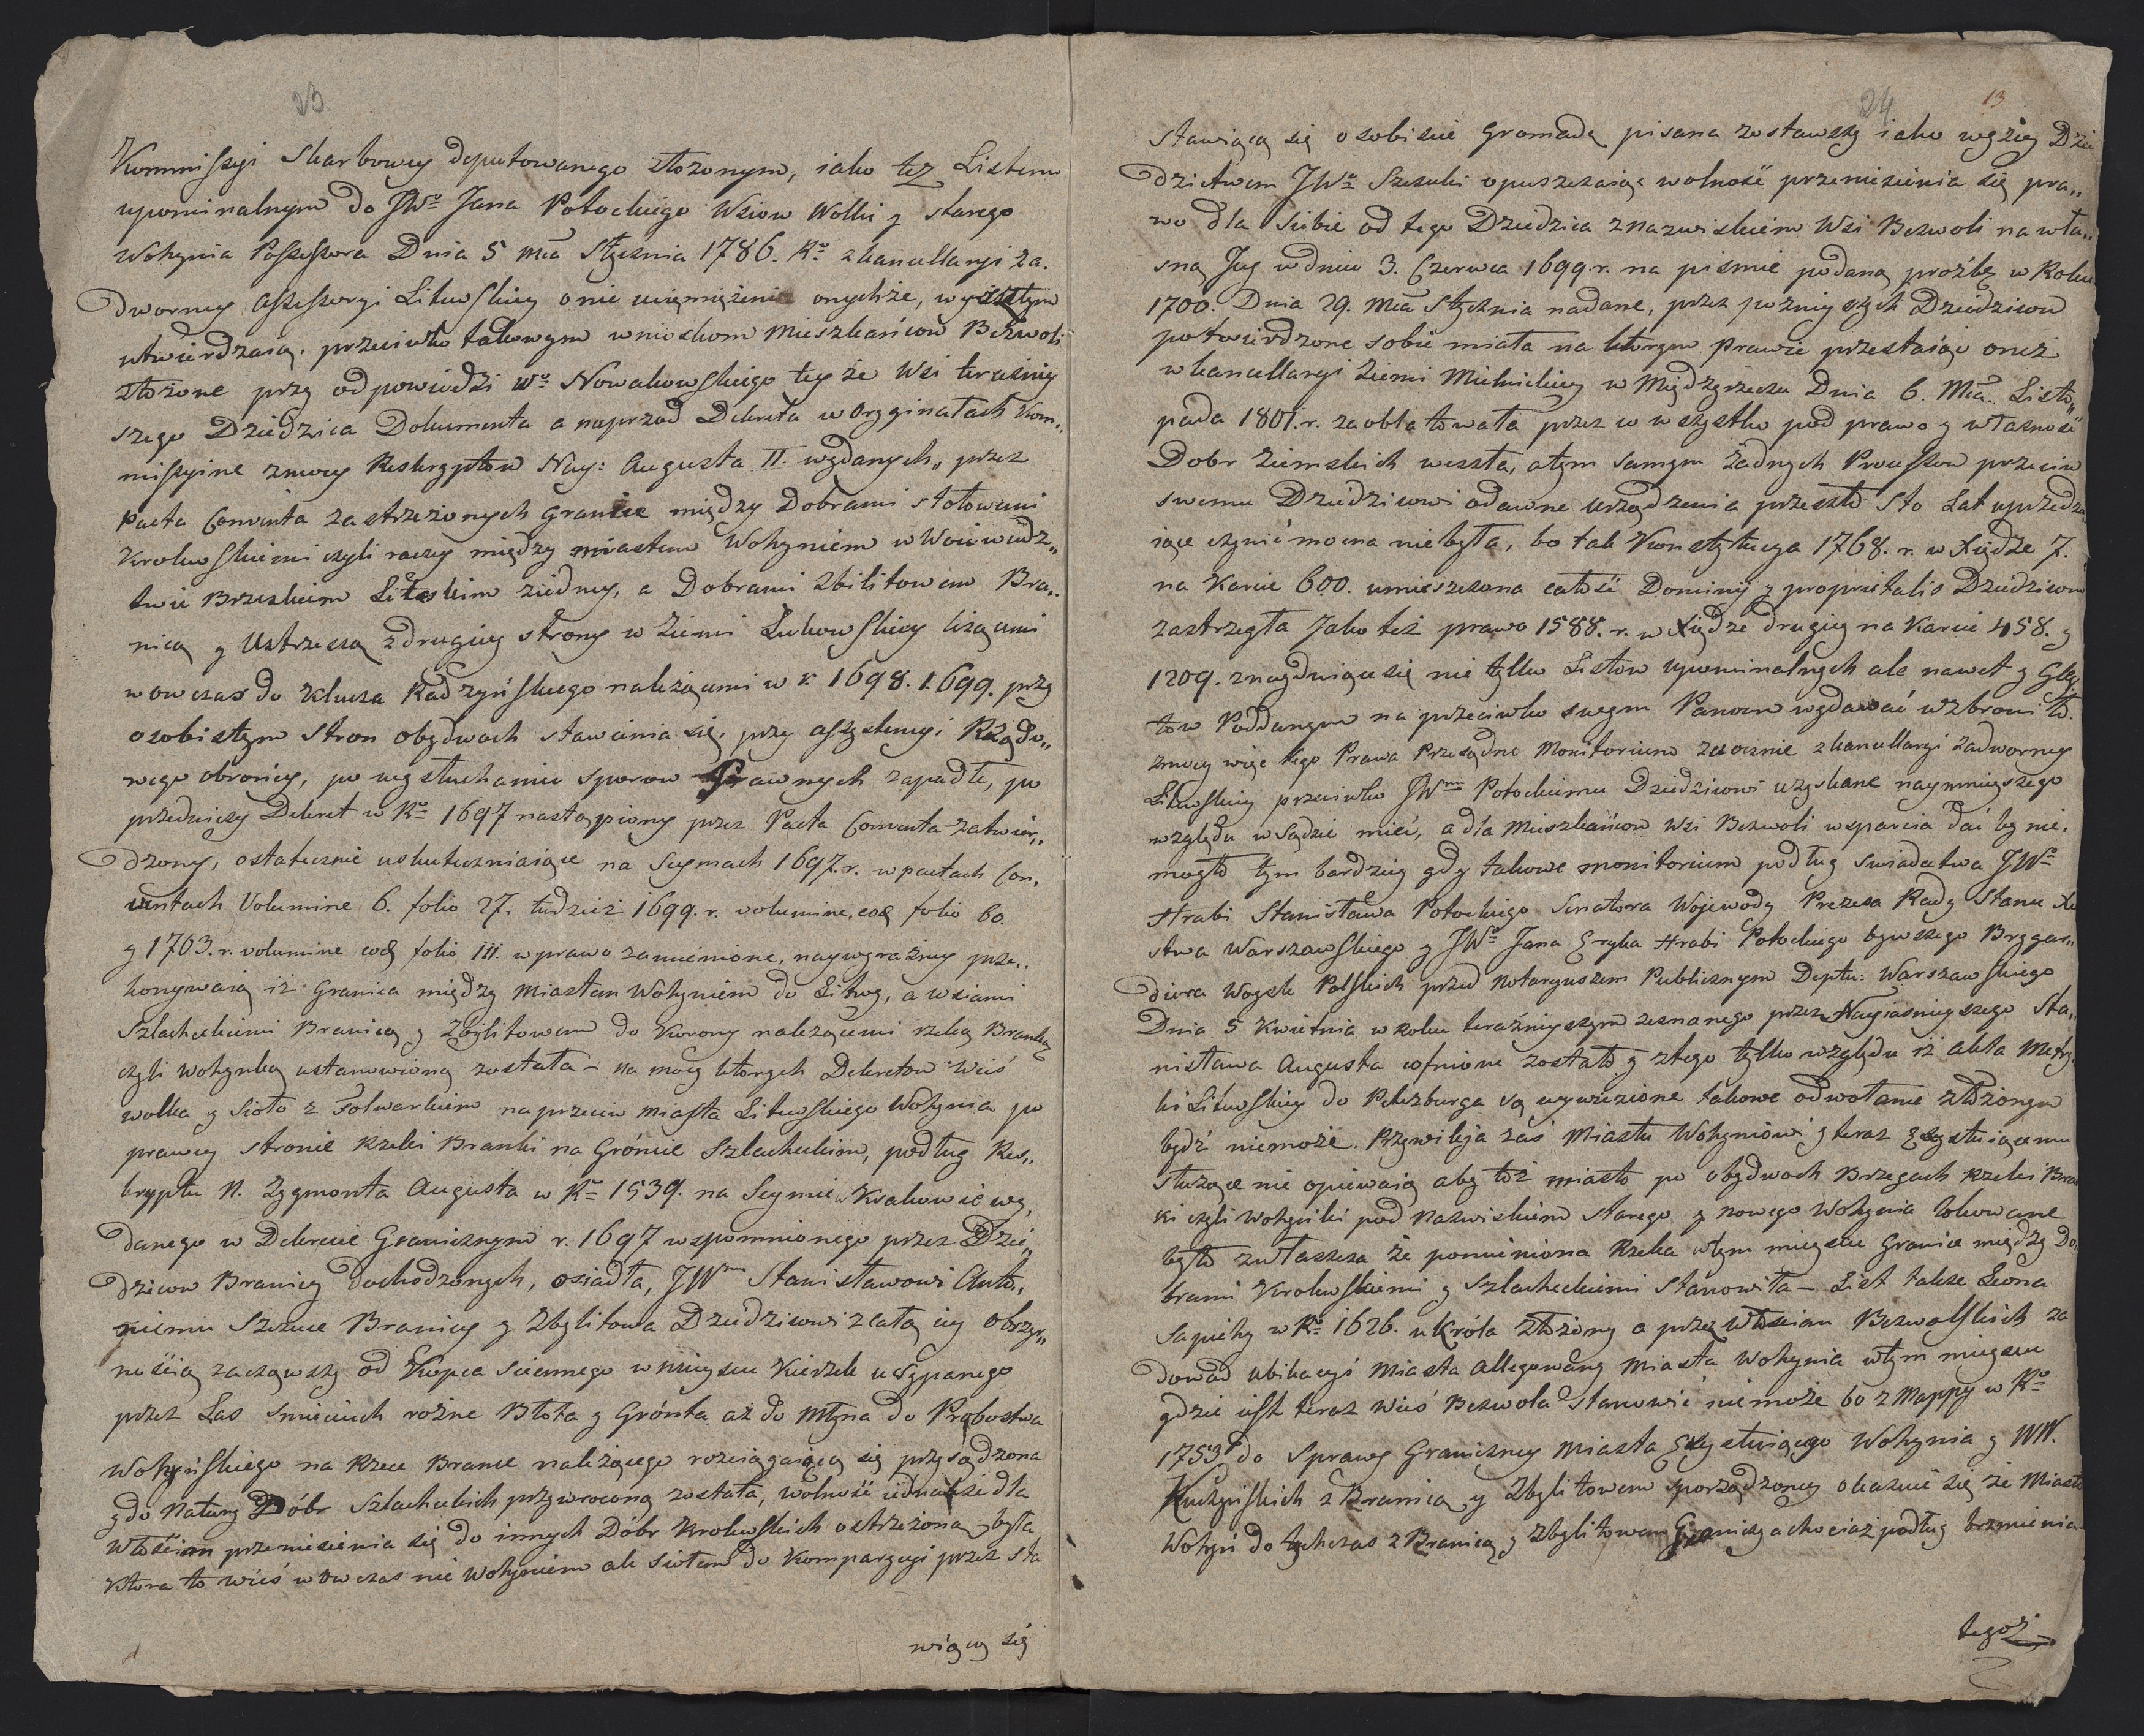 23
Kommissyi Skarbowey deputowanego złożonym, iako też Listem
upominalnym do JWo Jana Potockiego Wsiow Wolki y starego
Wohynia Possessora Dnia 5 mca Stycznia 1786. Ro z kancellaryi za.
dworney Assessoryi Litewskiey o nie uciemiężenie onychże, wyszłym
utwierdzaią. przeciwko takowym wnioskom Mieszkańcow Bezwoli
złożone przy odpowiedzi Wo Nowakowskiego teyże Wsi teraźniey„
szego Dziedzica Dokumenta a naprzod Dekreta w Orygginałach Kom„
missyine z mocy Reskryptow Nay: Augusta II. wydanych„ przez
Pacta Conventa zastrzeżonych Granice między Dobrami stołowemi
Krolewskiemi czyli raczey między miastem Wohyniem w Woiewodz„
twie Brzeskim Litewskim z iedney, a Dobrami Zbilitowem Bra„
nicą y Ustrzeszą z drugiey strony w Ziemi Łukowskiey leżącemi
w ow czas do Klucza Radzyńskiego należącemi w r. 1698. 1699. przy
osobistym stron obydwoch stawienia się, przy assystencyi Rządo„
wego obrońcy, po wysłuchaniu sporow Prawnych zapadłe, po
przedniczy Dekret w Ro 1697 nastąpiony przez Pacta Conventa zatwier„
dzony, ostatecznie uskuteczniaiące na Seymach 1697. r. w pactach Con„
ventach Volumine 6. folio 27. tudzież 1699. r. volumine, eod folio 60.
y 1763. r. volumine eod folio III. w prawo zamienione, naywyraźniey prze„
konywaią iż Granica między Miastem Wohyniem do Litwy, a wsiami
Szlacheckiemi Branicą y Zbylitowem do Korony należącemi rzeką Branką
czyli Wohynką ustanowioną została – na mocy ktorych Dekretow Wieś
Wolka y Sioło z Folwarkiem naprzeciw Miasta Litewskiego Wohynia po
prawey stronie Rzeki Branki na Gróncie Szlacheckim, podług Res„
kryptu N. Zygmonta Augusta w Ro 1539. na Seymie w Krakowie wy„
danego w Dekrecie Granicznym r. 1697 wspomnionego przez Dzie„
dzicow Branicy dochodzonych, osiadła, JWmu Stanisławowi Anto„
niemu Szczuce Branicy y Zbylitowa Dziedzicowi z całą iey obszyr„
nością zacząwszy od Kopca sciennego w mieyscu Kierzek usypanego
przez Las Smieciuch rożne Błota y Grónta aż do Młyna do Probostwa
Wohyńskiego na Rzece Brance należącego rozciągaiącą się przysądzona
y do Natury Dóbr Szlacheckich przywrocona została, wolność iednakże dla
Włościan przeniesienia się do innych Dóbr Krolewskich ostrzeżona była
Ktora to wieś w ow czas nie Wohyniem ale siołem do Komparycyi przez sta
wiącą się
24 13
stawiącą się osobiscie Gromadę pisana zostawszy iako wyżey Dzie
dzictwem JWo Szczuki opuszczaiąc wolność przeniesienia się pra„
wo dla siebie od tego Dziedzica z nazwiskiem Wsi Bezwoli na wła„
sną Jey w dniu 3. Czerwca 1699 r. na pismie podaną prożbę w Roku
1700. Dnia 29. Mca Stycznia nadane, przez poźnieyszych Dziedzicow
potwierdzone sobie miała na ktorym prawie przestaiąc oneż
w kancellaryi Ziemi Mielnickiey w Międzyrzeczu Dnia 6. Mca. Listo„
pada 1801. r. zaoblatowała przez co wszystko pod prawo y własność
Dobr Ziemskich weszła, a tym samym żadnych Processow przeciw
swemu Dziedzicowi o dawne urządzenia przeszło Sto Lat uprzedza
iące czynić mocna niebyła, bo tak Konstytucya 1768. r. w Xiędze 7.
na Karcie 600. umieszczona całość Dominij y proprietatis Dziedzicom
zastrzegła Jako też prawo 1588. r. w Xiędze drugiey na Karcie 458. y
1209. znayduiące się nie tylko Listow upominalnych ale nawet y Gley
tow Poddanym na przeciwko swym Panom wydawać wzbroniło.
z mocy więc tego Prawa Przesądne Monitorium zaocznie z kancellaryi Zadworney
Litewskiey przeciwko JWmu Potockiemu Dziedzicowi uzyskane naymnieyszego
względu w Sądzie mieć, a dla Mieszkańcow Wsi Bezwoli wsparcia dać by nie.
mogło tym bardziey gdy takowe monitorium podług swiadectwa JWo
Hrabi Stanisława Potockiego Senatora Wojewody Prezesa Rady Stanu Xe
stwa Warszawskiego y JWo Jana Eryka Hrabi Potockiego bywszego Brygar„
diera Woysk Polskich przed Notaryuszem Publicznym Deptu: Warszawskiego
Dnia 5 Kwietnia w Roku teraźnieyszym zeznanego przez Nayiasnieyszego Sta„
nisława Augusta cofnione zostało y z tego tylko względu iż akta Metry„
ki Litewskiey do Petezburga są wywiezione takowe odwołanie złożonym
bydź niemoże. Przywileja zaś Miastu Wohyniowi y teraz Egzystuiącemu
służące nie opiewaią aby toż miasto po obydwoch Brzegach Rzeki Bran
ki czyli Wohyńki pod Nazwiskiem starego y nowego Wohynia lokowane
było zwłaszcza że pomieniona Rzeka w tym mieyscu Granice między Do
brami Krolewskiemi y Szlacheckiemi Stanowiła – List także Leona
Sapiehy w Ro 1626. u Króla złożony a przez Włoscian Bezwolskich za
dowod ubikacyi Miasta allegowany Miasta Wohynia w tym mieyscu
gdzie iest teraz wieś Bezwola Stanowić niemoże bo z Mappy w Ro
1753 do Sprawy Graniczney Miasta Egzystuiącego Wohynia y WW.
Kuczyńskich z Branicą y Zbylitowem sporządzoney okazuie się że Miasto
Wohyń do tychczas z Branicą y Zbylitowem Graniczy a chociaż podług brzmienia
tegoż